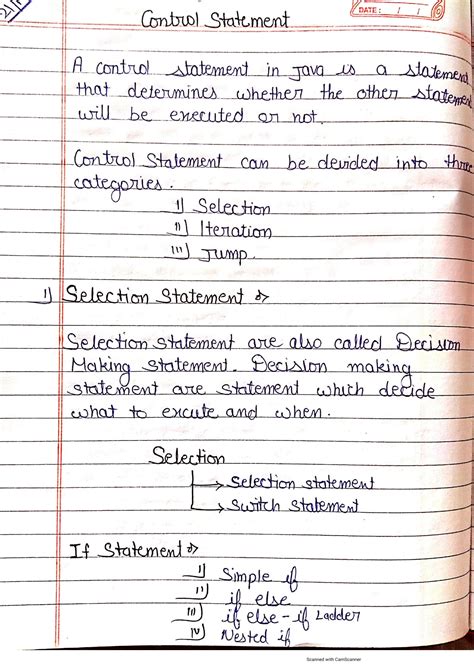 Control Statement
DATE: / /
A control statement in Java is a statement
that determines whether the other statement
will be executed or not.
Control Statement can be devided into three
categories.
i) Selection
ii) Iteration
iii) Jump.
1) Selection Statement :-
Selection statement are also called Decision
Making statement. Decision making
statement are statement which decide
what to excute and when.
Selection
→ Selection statement
→ Switch statement
If Statement :-
i) Simple if
ii) if else
iii) if else - if Ladder
iv) Nested if
Scanned with CamScanner